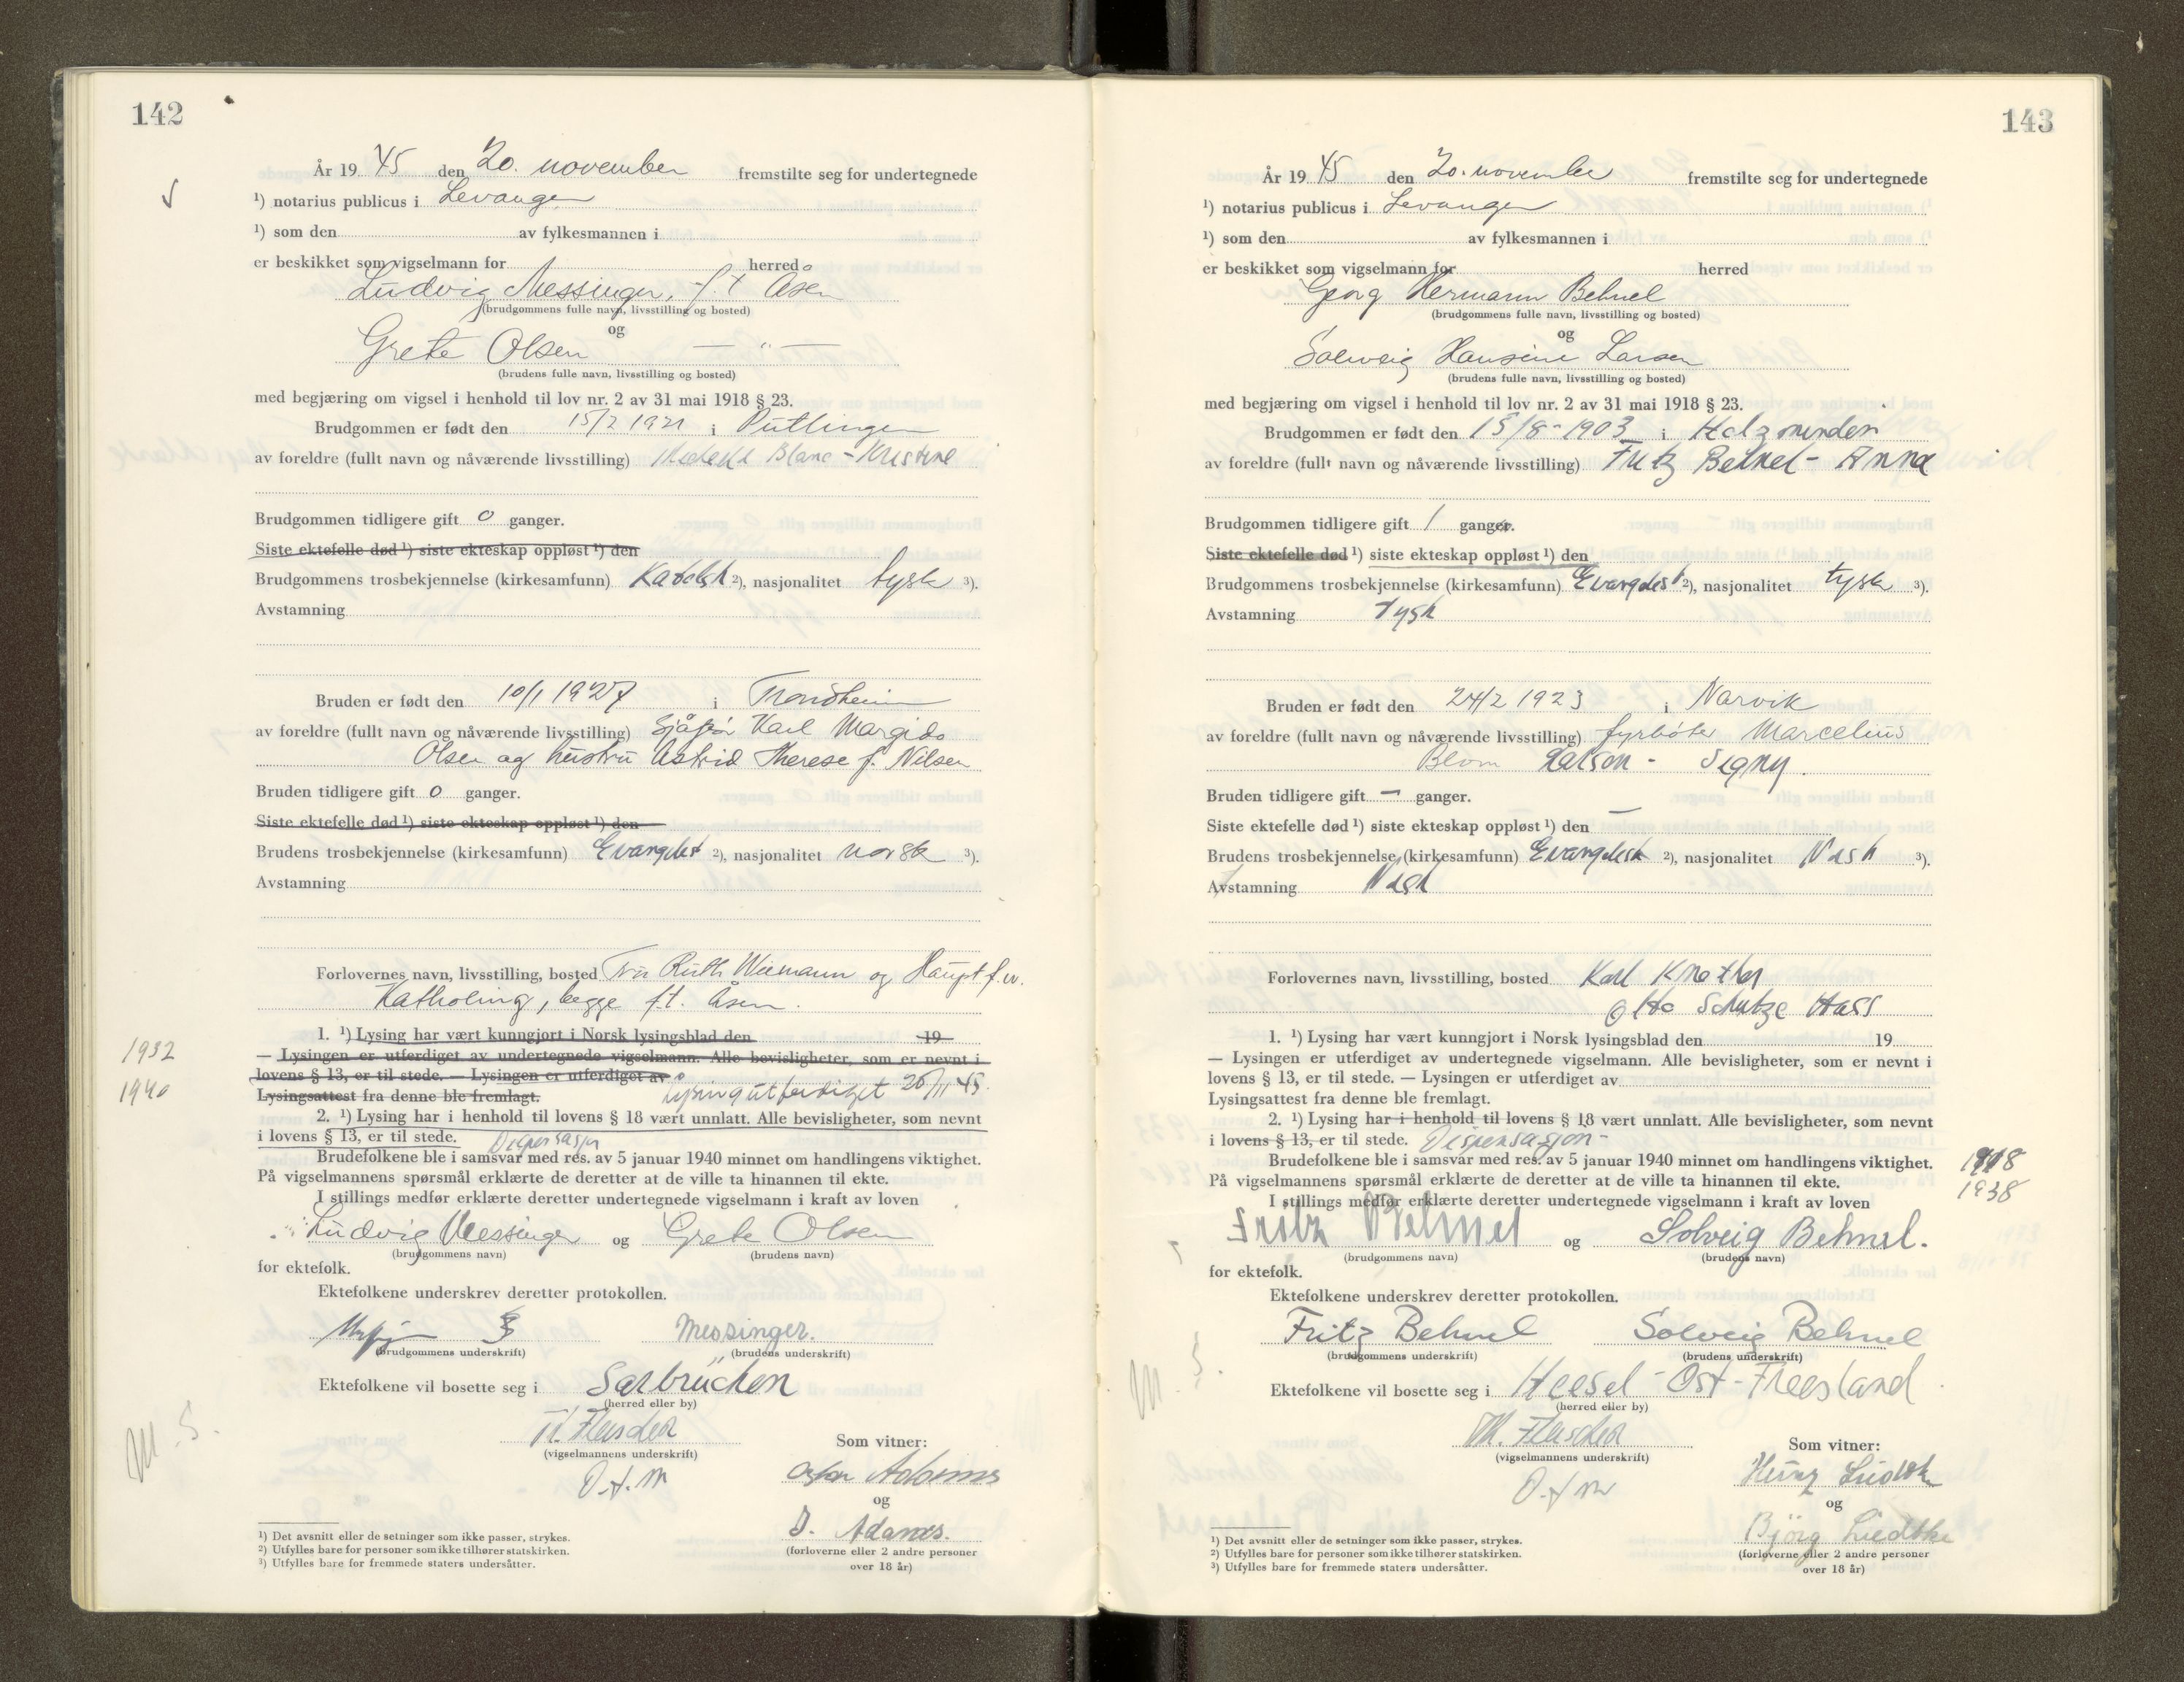 142
År 19 45 den 20. november fremstilte seg for undertegnede
¹) notarius publicus i Levanger
¹) som den av fylkesmannen i
er beskikket som vigselmann for herred
Ludvig Messinger, f.t. Åsen
(brudgommens fulle navn, livsstilling og bosted)
og
Grete Olsen — " —
(brudens fulle navn, livsstilling og bosted)
med begjæring om vigsel i henhold til lov nr. 2 av 31 mai 1918 § 23.
Brudgommen er født den 15/2 1921 i Püttlingen
av foreldre (fullt navn og nåværende livsstilling) Blanc - Kristine
Brudgommen tidligere gift 0 ganger.
Siste ektefelle død ¹) siste ekteskap oppløst ¹) den
Brudgommens trosbekjennelse (kirkesamfunn) Katolsk ²), nasjonalitet tysk ³).
Avstamning
Bruden er født den 10/1 1927 i Trondheim
av foreldre (fullt navn og nåværende livsstilling) Sjåfør Karl Margido
Olsen og hustru Astrid Therese f. Nilsen
Bruden tidligere gift 0 ganger.
Siste ektefelle død ¹) siste ekteskap oppløst ¹) den
Brudens trosbekjennelse (kirkesamfunn) Evangelist ²), nasjonalitet norsk ³).
Avstamning
Forlovernes navn, livsstilling, bosted Fru Ruth Wiemann og Hauptf.w.
Katholing, begge f.t. Åsen.
1. ¹) Lysing har vært kunngjort i Norsk lysingsblad den 19
1932
— Lysingen er utferdiget av undertegnede vigselmann. Alle bevisligheter, som er nevnt i
lovens § 13, er til stede. — Lysingen er utferdiget av
1940
Lysingsattest fra denne ble fremlagt. Lysing utferdiget 20/11 45.
2. ¹) Lysing har i henhold til lovens § 18 vært unnlatt. Alle bevisligheter, som nevnt
i lovens § 13, er til stede. Dispensasjon
Brudefolkene ble i samsvar med res. av 5 januar 1940 minnet om handlingens viktighet.
På vigselmannens spørsmål erklærte de deretter at de ville ta hinannen til ekte.
I stillings medfør erklærte deretter undertegnede vigselmann i kraft av loven
Ludvig Messinger og Grete Olsen
(brudgommens navn) (brudens navn)
for ektefolk.
Ektefolkene underskrev deretter protokollen.
Messinger.
(brudgommens underskrift) (brudens underskrift)
Ektefolkene vil bosette seg i Sarbrücken
(herred eller by)
M. S.
(vigselmannens underskrift)
Som vitner:
Adams
og
D. Adams.
(forloverne eller 2 andre personer
over 18 år)
¹) Det avsnitt eller de setninger som ikke passer, strykes.
²) Utfylles bare for personer som ikke tilhører statskirken.
³) Utfylles bare for fremmede staters undersåtter.
143
År 19 45 den 20. november fremstilte seg for undertegnede
¹) notarius publicus i Levanger
¹) som den av fylkesmannen i
er beskikket som vigselmann for herred
Georg Hermann Behnel
(brudgommens fulle navn, livsstilling og bosted)
og
Solveig Hansine Larsen
(brudens fulle navn, livsstilling og bosted)
med begjæring om vigsel i henhold til lov nr. 2 av 31 mai 1918 § 23.
Brudgommen er født den 15/8 - 1903 i Holzminden
av foreldre (fullt navn og nåværende livsstilling) Fritz Behnel - Anna
Brudgommen tidligere gift 1 ganger.
Siste ektefelle død ¹) siste ekteskap oppløst ¹) den
Brudgommens trosbekjennelse (kirkesamfunn) Evangelist ²), nasjonalitet tysk ³).
Avstamning Tysk
Bruden er født den 24/2 1923 i Narvik
av foreldre (fullt navn og nåværende livsstilling) fyrbøter Marcelius
Blom Larson - Signy.
Bruden tidligere gift — ganger.
Siste ektefelle død ¹) siste ekteskap oppløst ¹) den —
Brudens trosbekjennelse (kirkesamfunn) Evangelisk ²), nasjonalitet Norsk ³).
Avstamning Norsk
Forlovernes navn, livsstilling, bosted Karl
Otto Schutze Hass
1. ¹) Lysing har vært kunngjort i Norsk lysingsblad den 19
— Lysingen er utferdiget av undertegnede vigselmann. Alle bevisligheter, som er nevnt i
lovens § 13, er til stede. — Lysingen er utferdiget av
Lysingsattest fra denne ble fremlagt.
2. ¹) Lysing har i henhold til lovens § 18 vært unnlatt. Alle bevisligheter, som nevnt
i lovens § 13, er til stede. Dispensasjon -
Brudefolkene ble i samsvar med res. av 5 januar 1940 minnet om handlingens viktighet.
1918
På vigselmannens spørsmål erklærte de deretter at de ville ta hinannen til ekte.
1938
I stillings medfør erklærte deretter undertegnede vigselmann i kraft av loven
Fritz Behnel og Solveig Behnel.
(brudgommens navn) (brudens navn)
for ektefolk.
Ektefolkene underskrev deretter protokollen.
Fritz Behnel Solveig Behnel
(brudgommens underskrift) (brudens underskrift)
M. S.
Ektefolkene vil bosette seg i Heesel - Ost - Freesland
(herred eller by)
(vigselmannens underskrift)
Som vitner:
Heinz Liedtke
og
Bjørg Liedtke
(forloverne eller 2 andre personer
over 18 år)
¹) Det avsnitt eller de setninger som ikke passer, strykes.
²) Utfylles bare for personer som ikke tilhører statskirken.
³) Utfylles bare for fremmede staters undersåtter.